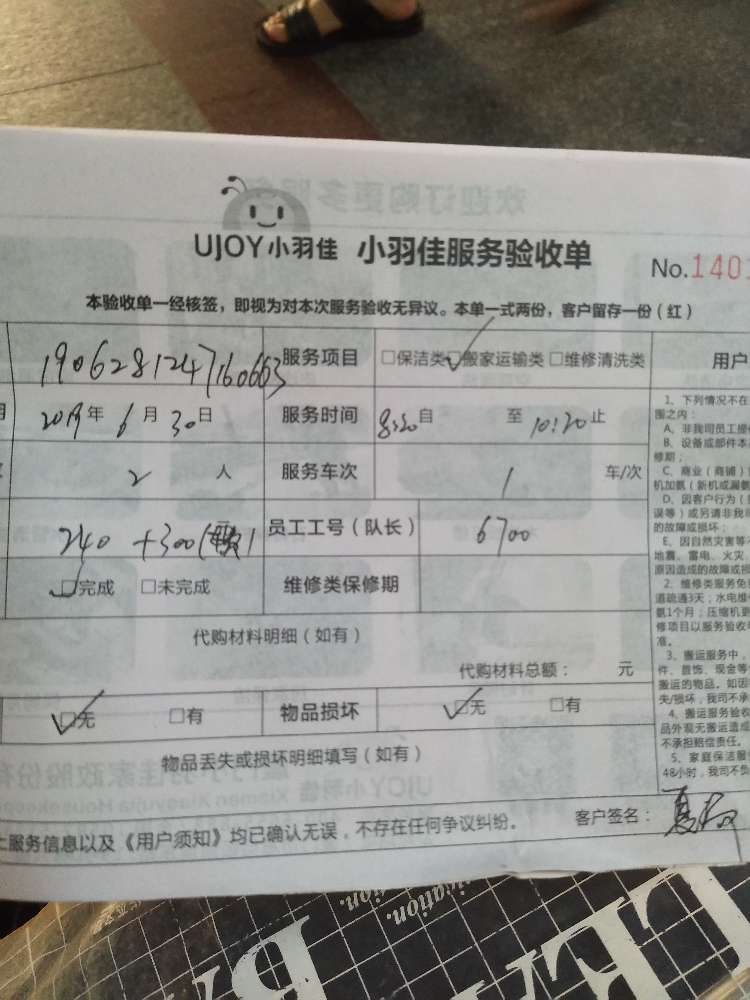 UJOY小羽佳 小羽佳服务验收单
No.1401
本验收单一经核签，即视为对本次服务验收无异议。本单一式两份，客户留存一份（红）
1906281247160663 服务项目 □保洁类 □搬家运输类 □维修清洗类 用户
2019年6月30日 服务时间 8:20自 至 10:20止
2 人 服务车次 1 车/次
240 +300 员工工号（队长） 6700
□完成 □未完成 维修类保修期
代购材料明细（如有）
代购材料总额： 元
□无 □有 物品损坏 □无 □有
物品丢失或损坏明细填写（如有）
上服务信息以及《用户须知》均已确认无误，不存在任何争议纠纷。 客户签名：夏
1、下列情况不在
围之内：
A、非我司员工操
B、设备或部件本
修期；
C、商业（商铺）
机加氨（新机或漏氨
D、因客户行为（
误等）或另请非我
的故障或损坏；
E、因自然灾害等
地震、雷电、火灾
原因造成的故障或损
2、维修类服务免
道疏通3天；水电维
氨1个月；压缩机更
修项目以服务验收
准。
3、搬运服务中，
件、首饰、现金等
搬运的物品。如因
失/损坏，我司不承
4、搬运服务验收
品外观无搬运造成
不承担赔偿责任。
5、家庭保洁服
48小时，我司不负
欢迎订购更多服务